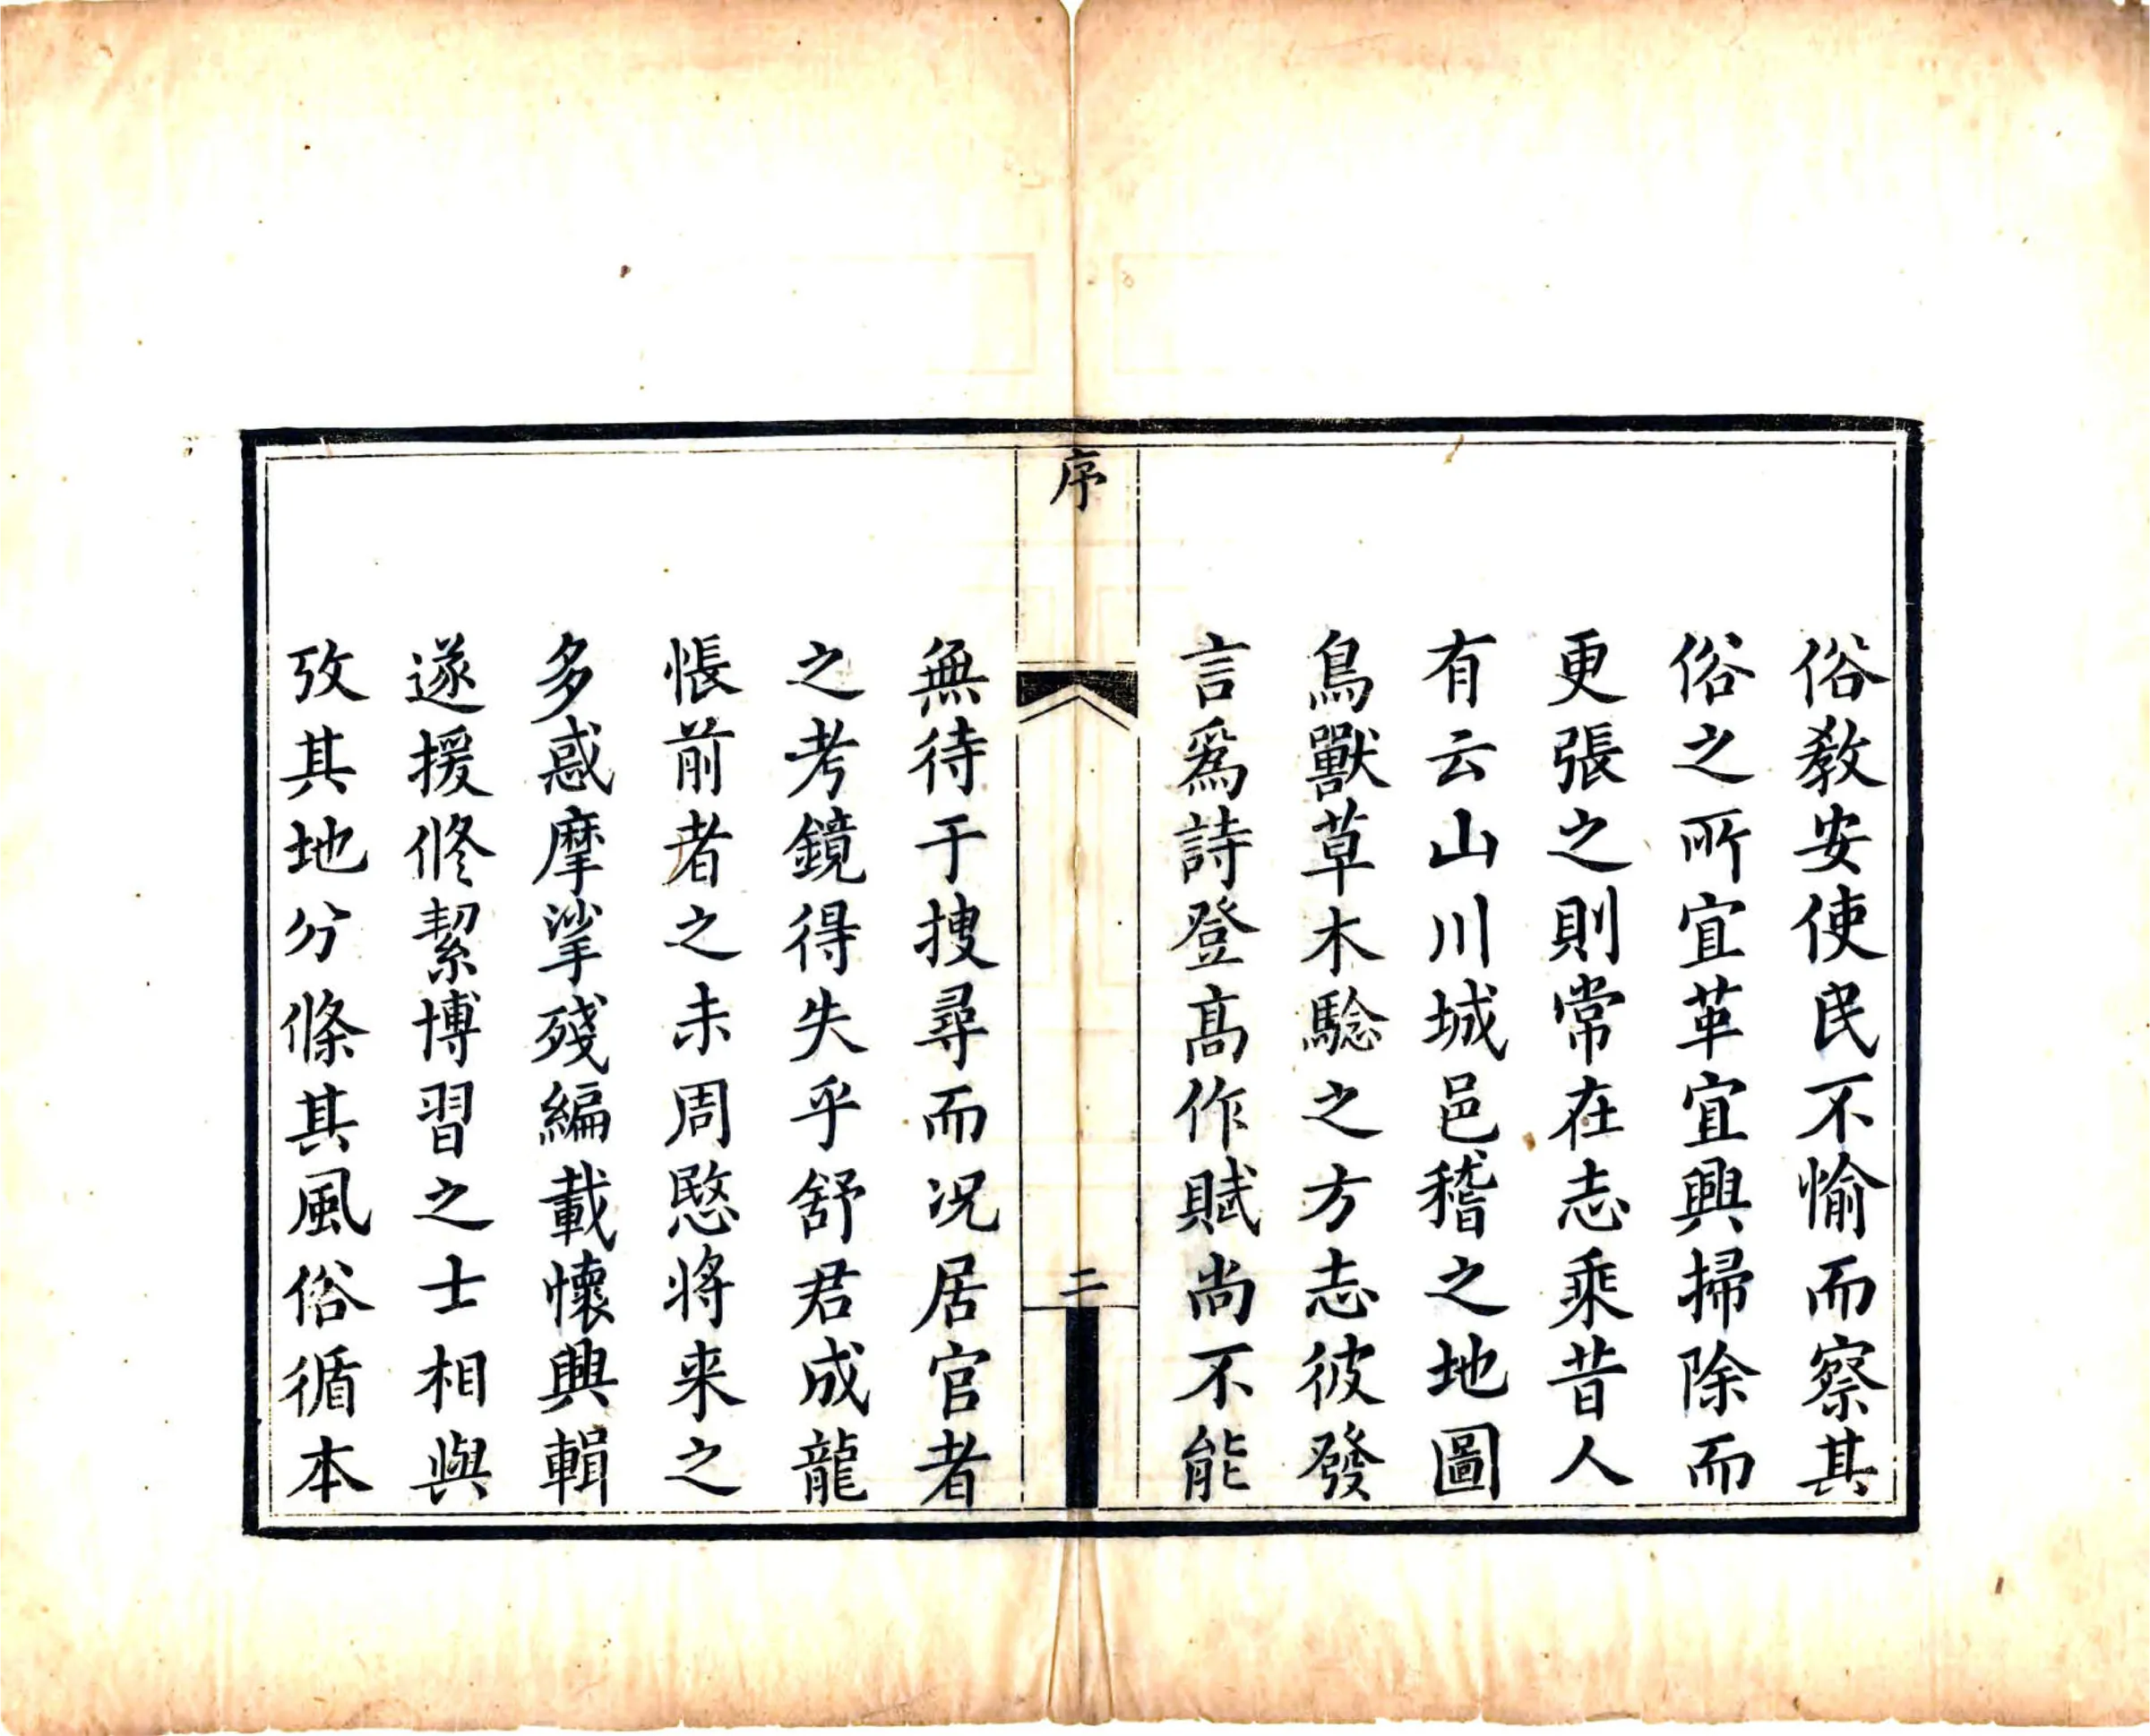 俗教安使民不愉而察其
俗之所宜革宜興掃除而
更張之則常在志乘昔人
有云山川城邑稽之地圖
鳥獸草木騐之方志彼發
言爲詩登髙作賦尚不能
序
二
無待于搜尋而况居官者
之考鏡得失乎舒君成龍
悵前者之未周愍将来之
多惑摩挲殘編載懷興輯
遂援修絜博習之士相與
攷其地分條其風俗循本